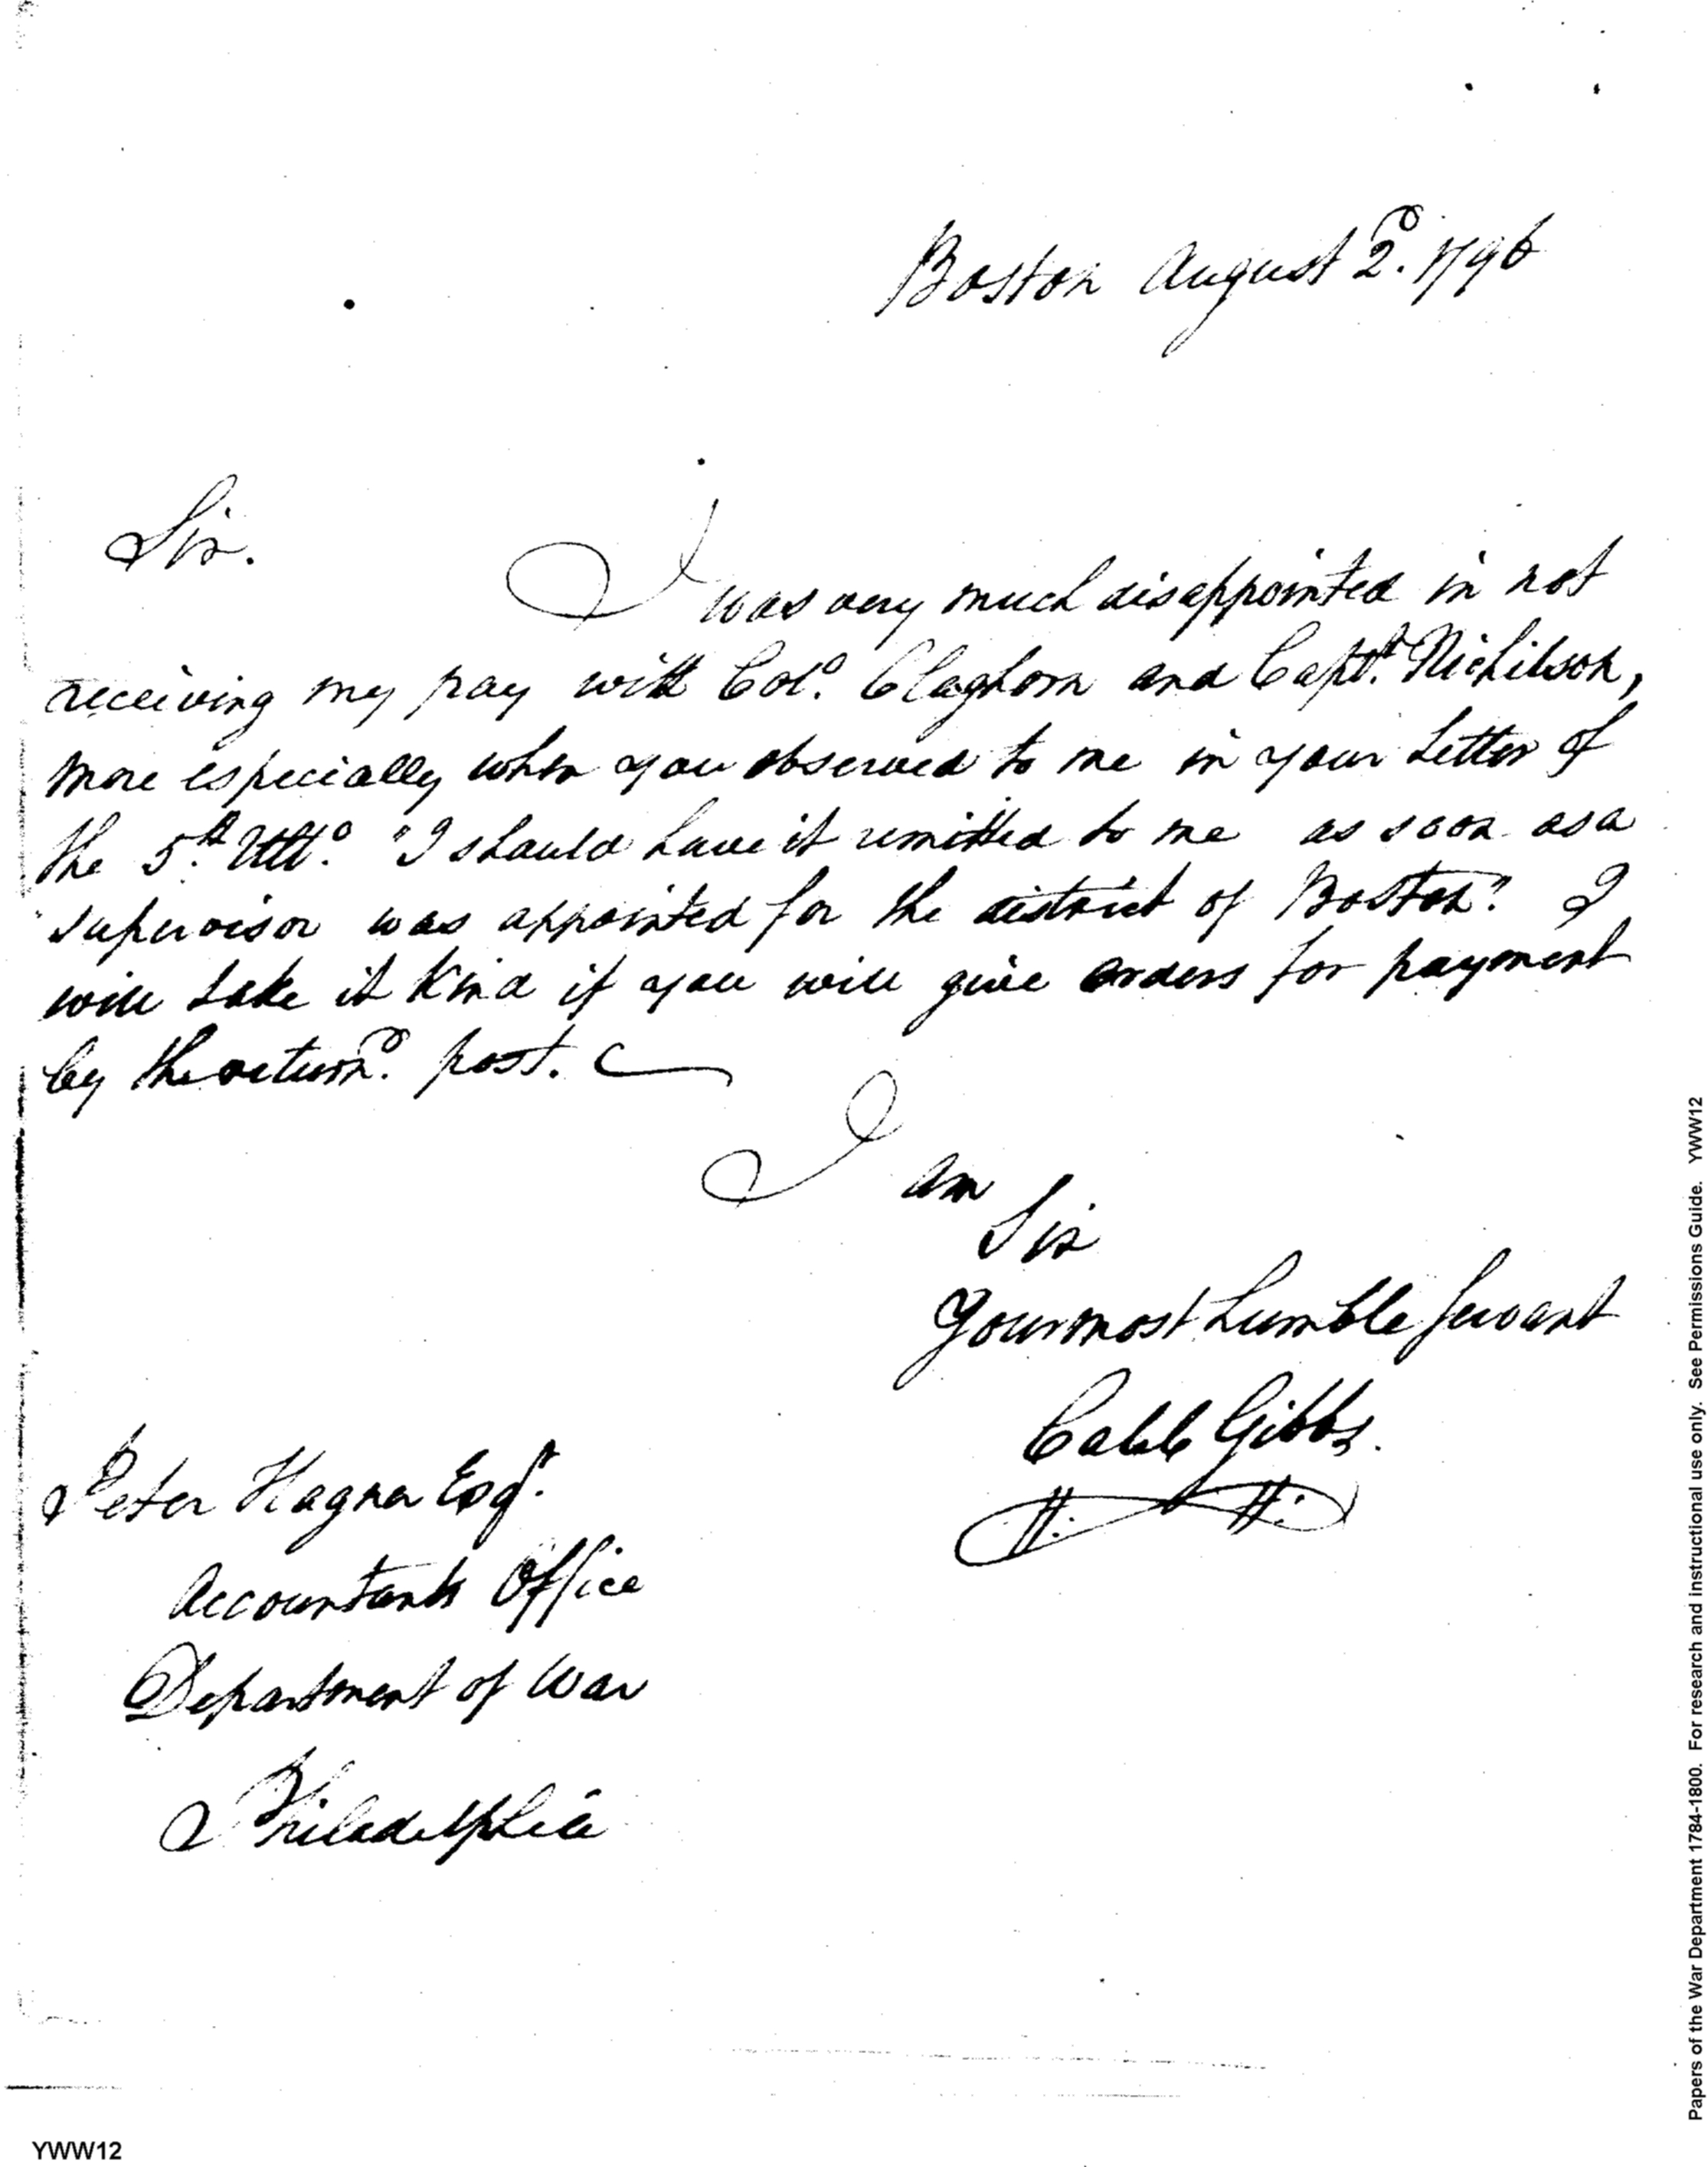 Boston August 2d. 1796
Sir.
I was very much disappointed in not
receiving my pay with Colo. Claghorn and Captt. Nichilson,
more especially when you observed to me in your Letter of
the 5th. Ulto. "I should have it remitted to me as soon as a
"supervisor was appointed for the district of Boston". I
will take it kind if you will give orders for payment
by the returnd. post.
I am
Sir
Your most humble servant
Caleb Gibbs.
Peter Hagner Esqr.
Accountants Office
Department of War
Philadelphia
YWW12
Papers of the War Department 1784-1800. For research and instructional use only. See Permissions Guide. YWW12